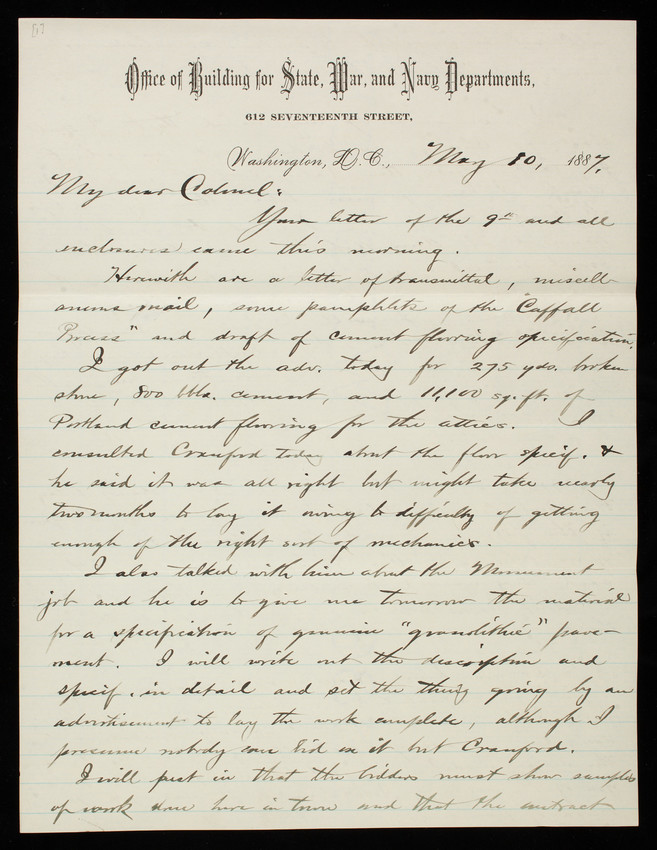 [1]
Office of Building for State, War, and Navy Departments,
612 SEVENTEENTH STREET,
Washington, D.C., May 10, 1887.
My dear Colonel:
Your letter of the 9th and all
enclosures came this morning.
Herewith are a letter of transmittal, miscell-
aneous mail, some pamphlets of the "Caffall
Process" and draft of cement flooring specification.
I got out the adv. today for 275 yds. broken
stone, 800 bbls. cement, and 11,100 sq. ft. of
Portland cement flooring for the attics. I
consulted Cranford today about the floor specif. &
he said it was all right but might take nearly
two months to lay it owing to difficulty of getting
enough of the right sort of mechanics.
I also talked with him about the Monument
job and he is to give me tomorrow the material
for a specification of genuine "granolithic" pave-
ment. I will write out the description and
specif. in detail and set the thing going by an
advertisement to lay the work complete, although I
presume nobody can bid on it but Cranford.
I will put in that the bidders must show samples
of work done here in town and that the contract